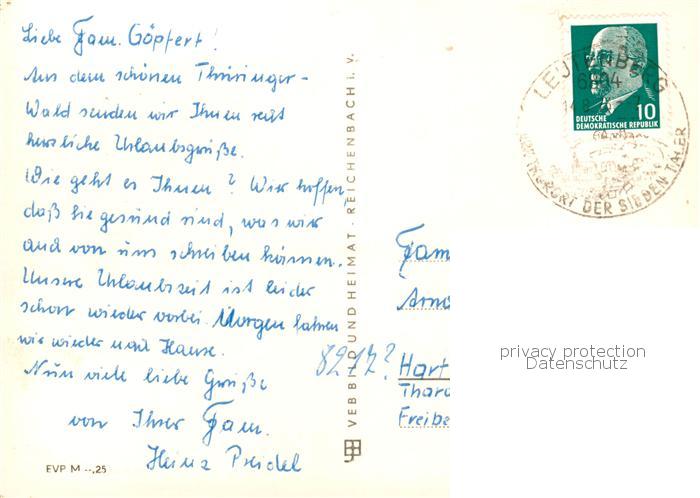 Liebe Fam. Göpfert!
Aus dem schönen Thüringer-
Wald senden wir Ihnen recht
herzliche Urlaubsgrüße.
Wie geht es Ihnen? Wir hoffen,
daß Sie gesund sind, was wir
auch von uns schreiben können.
Unsere Urlaubszeit ist leider
schon wieder vorbei. Morgen fahren
wir wieder nach Hause.
Nun viele liebe Grüße
von Ihrer Fam.
Heinz Preidel
EVP M --,25
VEB BILD UND HEIMAT · REICHENBACH i. V.
LEUTENBERG
10
DEUTSCHE
DEMOKRATISCHE REPUBLIK
DER SIEBEN TÄLER
Fam
Arno
8212?
Hart
Thara
Freibe
privacy protection
Datenschutz